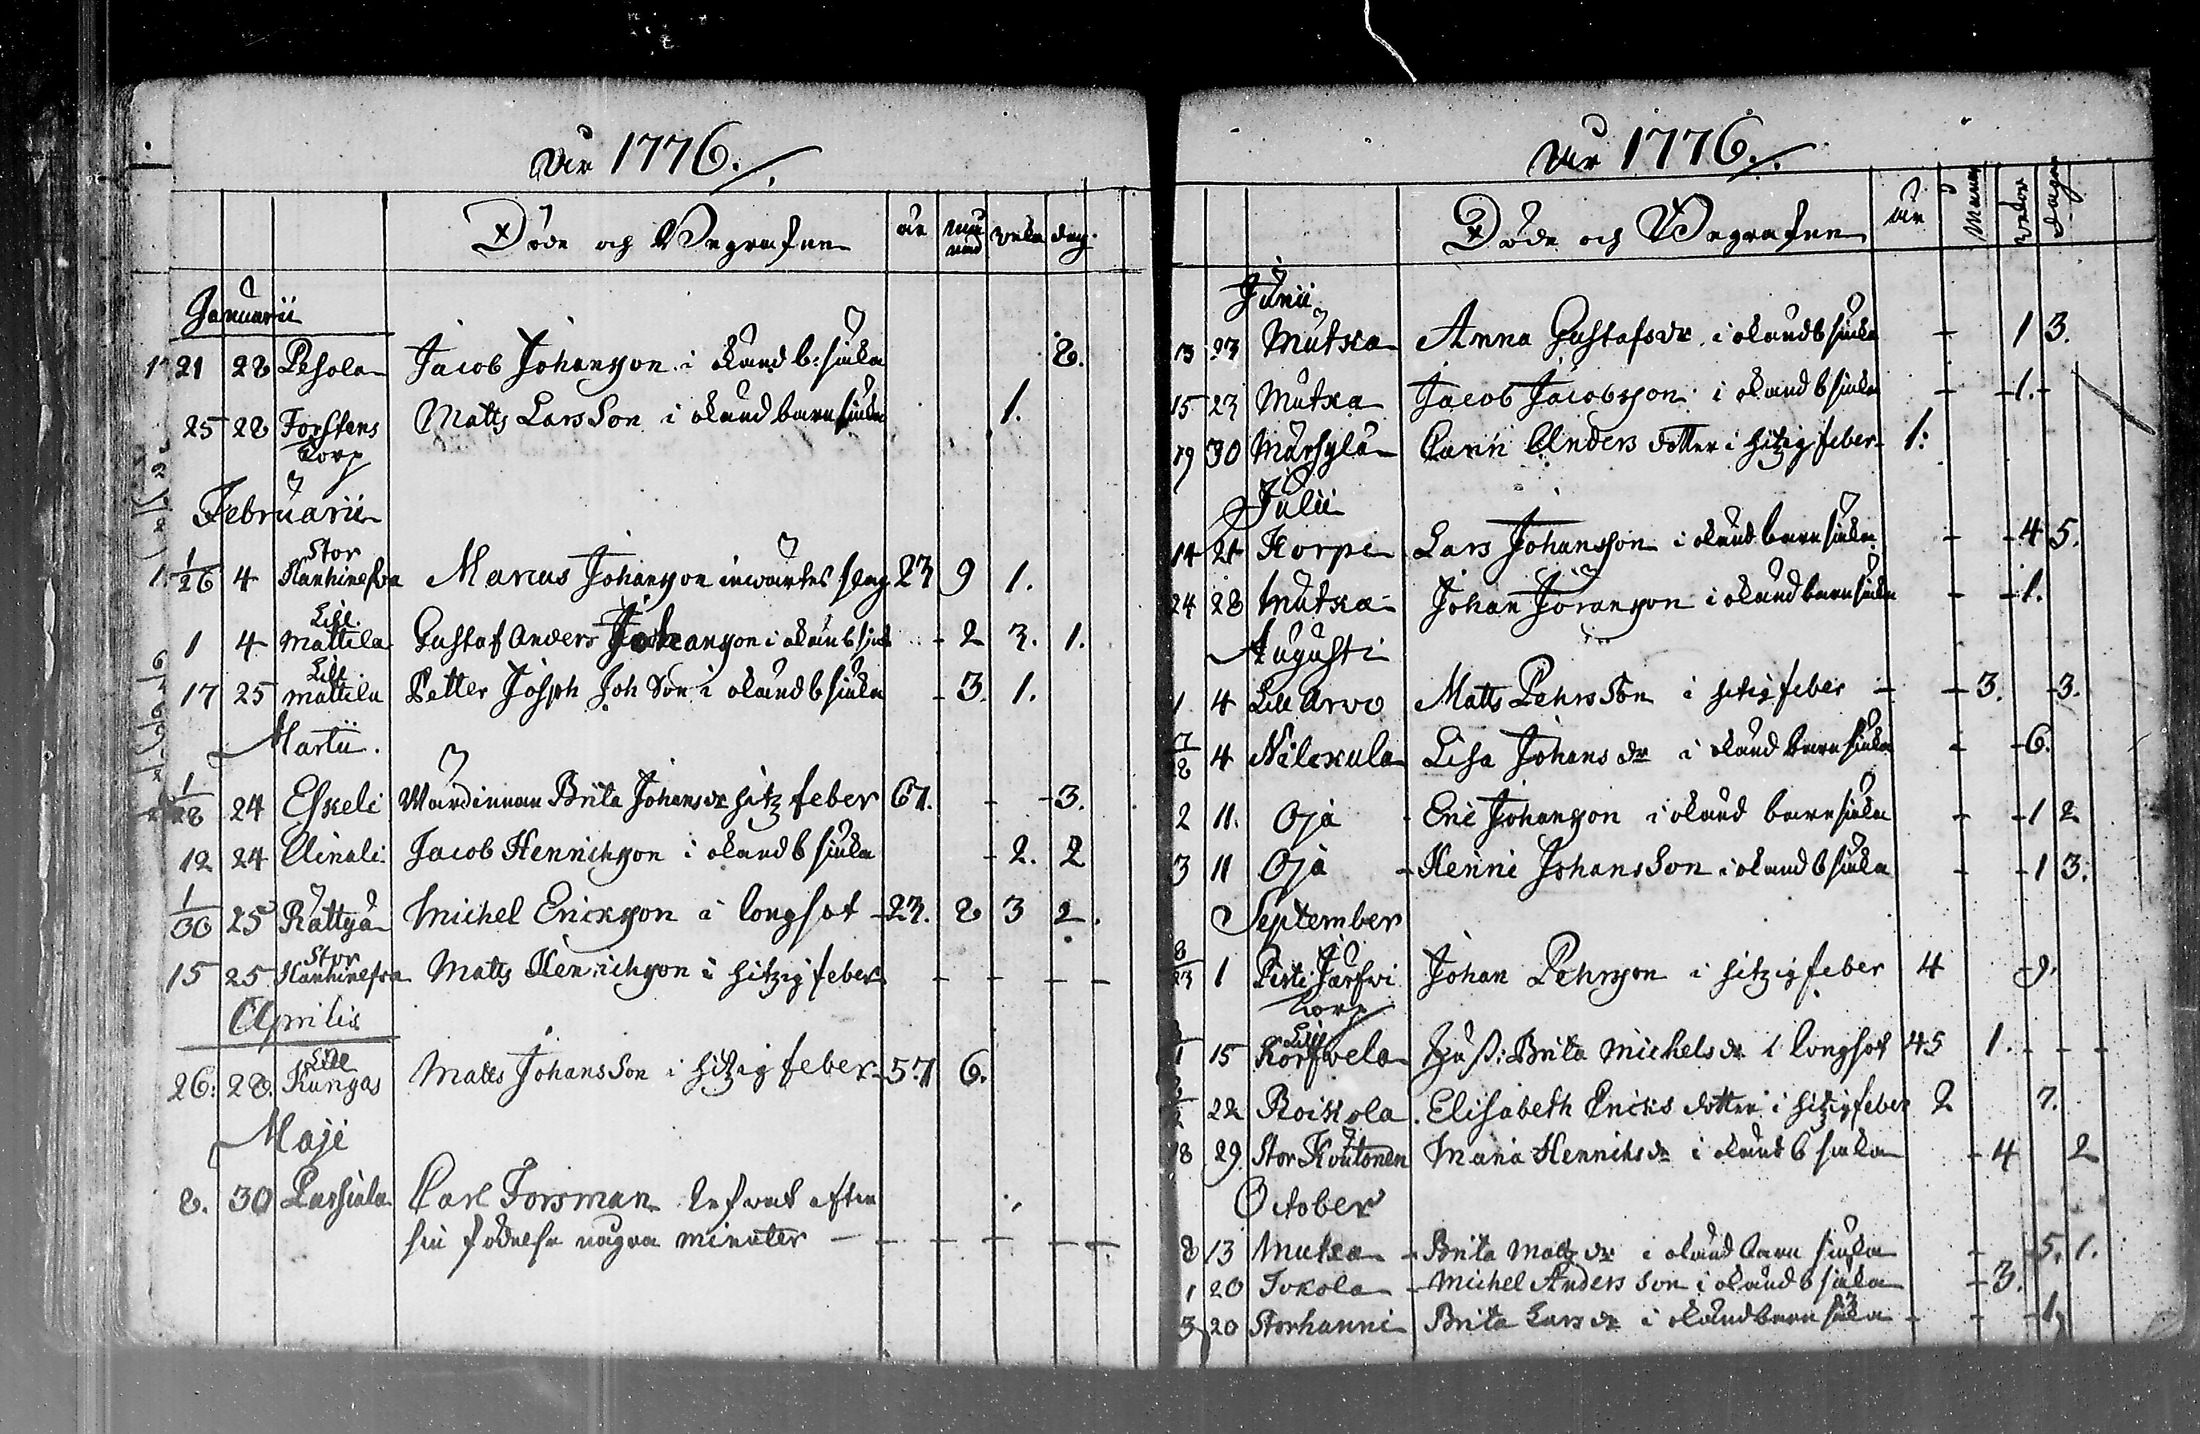 År 1776.
Döde och Begrafne år månad veka dag
Januarii
21 28 Pesola Jacob Johansson i okänd b: siuka 8.
25 28 Forstens Matts Larsson i okänd barnsiuka 1.
torp
Februarii
Stor
1/26 4 Hanhinefva Marcus Johansson inwärtes 23 9 1.
Lill
1 4 Mattila Gustaf Anders Johansson i okänd b siuk - 2 3. 1.
Lill
17 25 Mattila Petter Josph Joh Son i okänd b siuka - 3. 1.
Martii.
1/28 24 Eskeli Wärdinnan Brita Johans dr hitz feber 67. - - 3.
12 24 Ainali Jacob Henrichson i okänd b siuka - 2. 2
1/30 25 Rättyä Michel Erickson i lungsot - 23. 8 3 2.
Stor
15 25 Hanhinefva Matts Henrichson i hitzig feber - - - -
Aprilis
Lill
26. 28. Kangas Matts Johansson i hitzig feber - 57 6.
Maji
8. 30 Parsiala Carl Forsman lefvat efter
sin födelse några minuter - - - - -
År 1776.
Döde och Begrafne år Månad veckor dagar
Junii
13 23 Mutka Anna Gustafs dr i okänd b siuka - 1 3.
15 23 Mutka Jacob Jacobsson i okänd b siuka - - 1. -
19 30 Märsylä Carin Anders dotter i hitzig feber 1.
Julii
14 21 Korpi Lars Johansson i okänd barnsiuka - - 4 5.
24 28 Mutka Johan Göransson i okänd barnsiuka - - 1.
Augusti
1 4 Lill Arvo Matts Pehrsson i hitzig feber - - 3. - 3.
4 Nikula Lisa Johans dr i okänd barnsiuka - - 6.
2 11. Oja Eric Johansson i okänd barnsiuka - - 1 2
3 11 Oja Henric Johansson i okänd b siuka - - 1 3.
September
8/23 1 Pirti Järfwi Johan Pehrsson i hitzig feber 4 - 9.
torp
Lill
15 Korfwela Hust: Brita Michels dr i lungsot 45 1. - - -
22 Roikola Elisabeth Ericks dotter i hitzig feber 2 7.
8 29 Stor Koutonen Maria Henriks dr i okänd b siuka - 4 2
October
8 13 Mutka Brita Matts dr i okänd barn siuka - - 5. 1.
1 20 Tokola Michel Andersson i okänd b siuka - 3.
3 20 Storhanni Brita Lars dr i okänd barn siuka - - - 1